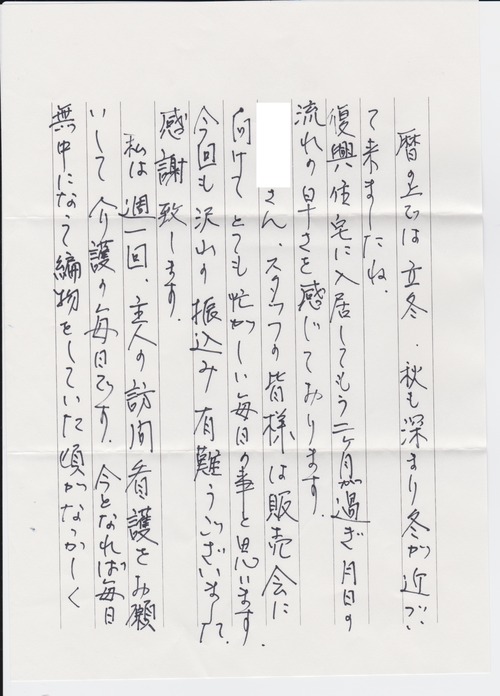 暦の上では立冬、秋も深まり冬が近づい
て来ましたね。
復興住宅に入居してもう二ヶ月が過ぎ月日の
流れの早さを感じております。
さん、スタッフの皆様は販売会に
向けてとても忙がしい毎日の事と思います。
今回も沢山の振込み有難うございました。
感謝致します。
私は週一回、主人の訪問看護をお願
いして介護の毎日です。今となれば毎日
無中になって編物をしていた頃がなつかしく